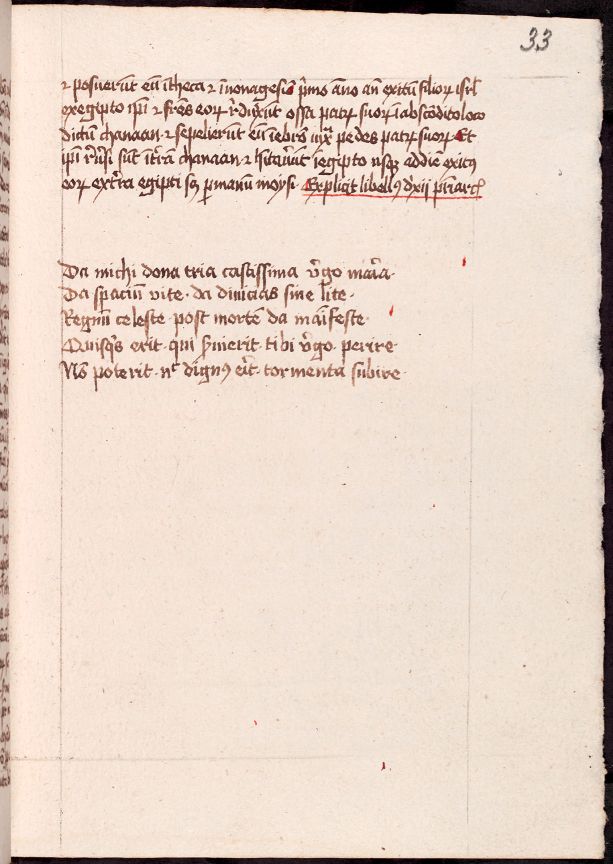 33
⁊ posuerūt eū ī theca ⁊ ī nonagesio p̄mo āno an̄ exitū filioꝝ isrl̄
ex egipto ip̄i ⁊ fr̄es eoꝝ r̄duxūt ossa patrꝝ suoꝝ ī abscōdito loco
dictū chanaan ⁊ sepelierūt eū ī ebron iux̄ pedes patrꝝ suoꝝ Et
ip̄i r̄u̓si sūt ī t̓ra chanaan ⁊ hītau̓ūt ī egipto usqꝫ ad diē exitꝰ
eoꝝ ex t̓ra egipti sꝫ ꝑ manū moysi · Explicit libellꝰ d̓ xii pr̄iarch̄
Da michi dona tria castissima v̓go mar̄ia ·
Da spaciū vite · da diuicias sine lite ·
Regnū celeste · post mortē da māifeste ·
Quisq̓s erit · qui s̓uierit · tibi v̓go · perire ·
Nō poterit · nc̄ dignꝰ eīt · tormenta subire ·